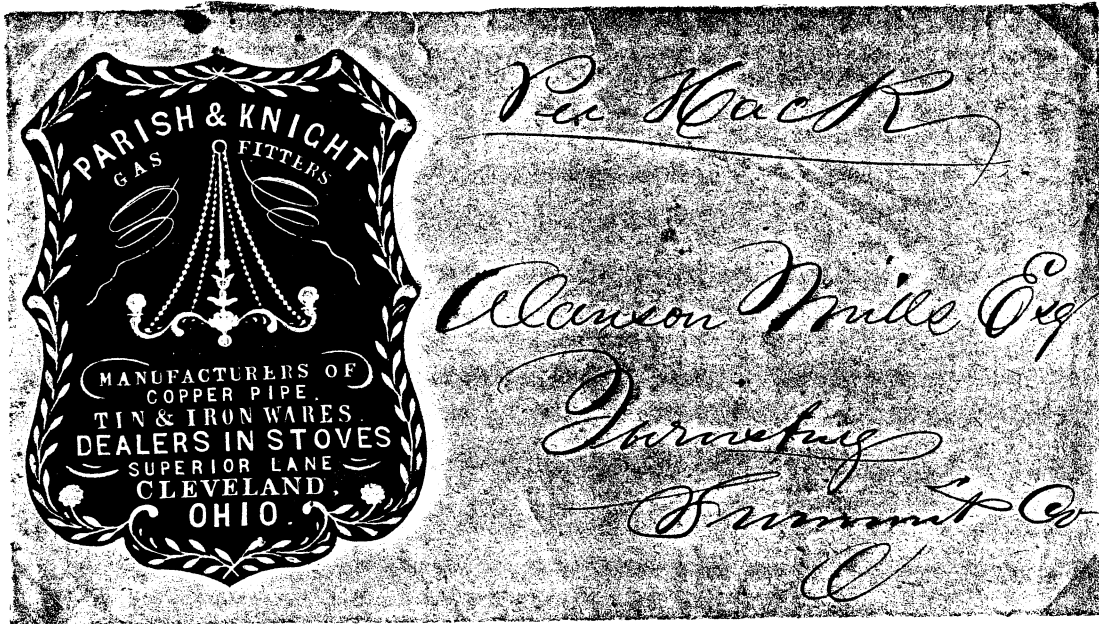 PARISH & KNIGHT
GAS FITTERS
MANUFACTURERS OF
COPPER PIPE.
TIN & IRON WARES.
DEALERS IN STOVES
SUPERIOR LANE
CLEVELAND,
OHIO.
Per Hack
Alanson Mills Esq
Summit Co
O